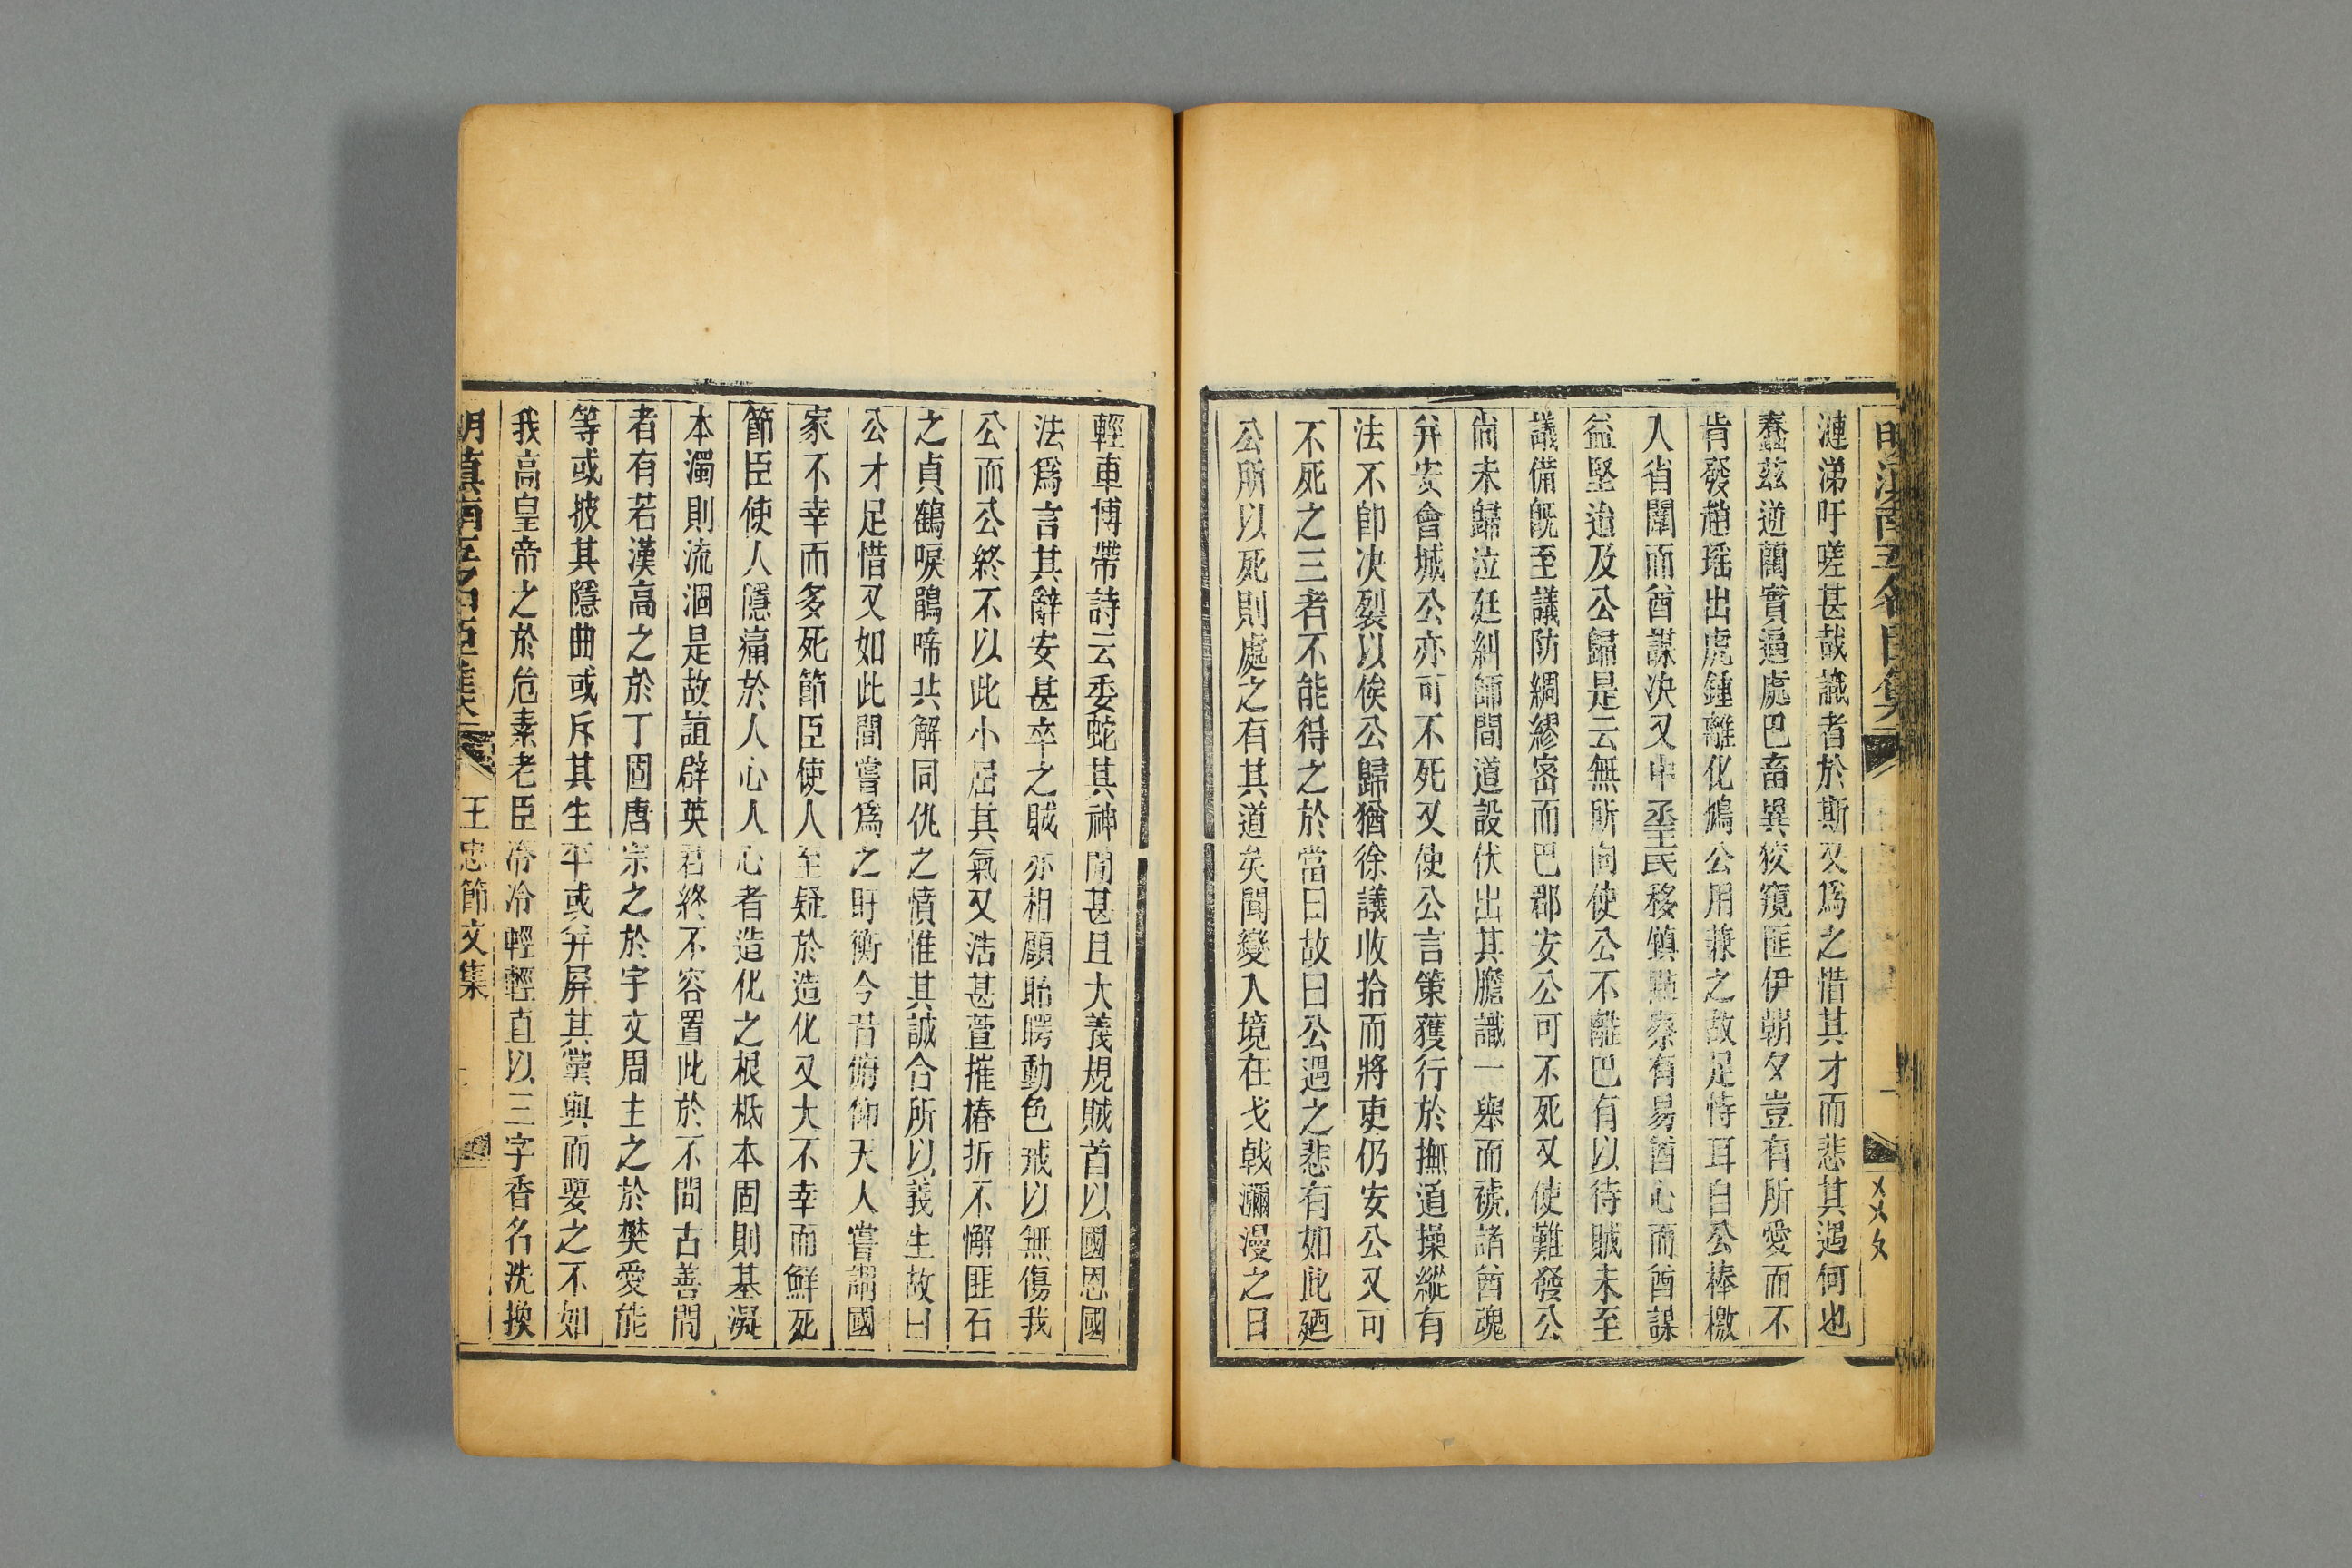 明滇南五名臣集
漣涕吁嗟甚哉識者於斯又爲之惜其才而悲其遇何也
蠢茲逆藺實逼處巴畜異狡窺匪伊朝夕豈有所愛而不
肯發趙瑶出虎鍾離化鴆公用兼之故足恃耳自公棒檄
入省闈而酋謀决又中丞王民移鎮黔泰有易酋心而酋謀
益堅迨及公歸是云無所向使公不離巴有以待賊未至
議備旣至議防綢繆宻而巴郡安公可不死又使難發公
尚未歸泣廷糾師間道設伏出其膽識一舉而禠諸酋魂
并安會城公亦可不死又使公言策獲行於撫道操縱有
法不卽决裂以俟公歸猶徐議收拾而將吏仍安公又可
不死之三者不能得之於當日故曰公遇之悲有如此廼
公所以死則處之有其道矣聞變入境在戈戟瀰漫之日
輕車博帶詩云委蛇其神閒甚且大義規賊首以國恩國
法爲言其辭安甚卒之賊亦相顧眙愕動色戒以無傷我
公而公終不以此小屈其氣又浩甚萱摧椿折不懈匪石
之貞鶴唳鵑啼共解同仇之憤惟其誠合所以義生故曰
公才足惜又如此間嘗爲之盱衡今昔俯仰天人嘗謂國
家不幸而多死節臣使人至疑於造化又大不幸而鮮死
節臣使人隱痛於人心人心者造化之根柢本固則基凝
本濁則流涸是故誼辟英君終不容置此於不問古善問
者有若漢高之於丁固唐宗之於宇文周主之於樊愛能
等或披其隱曲或斥其生平或并屏其黨與而要之不如
我高皇帝之於危素老臣冷冷輕輕直以三字香名洗換
明滇南五名臣集
王忠節文集